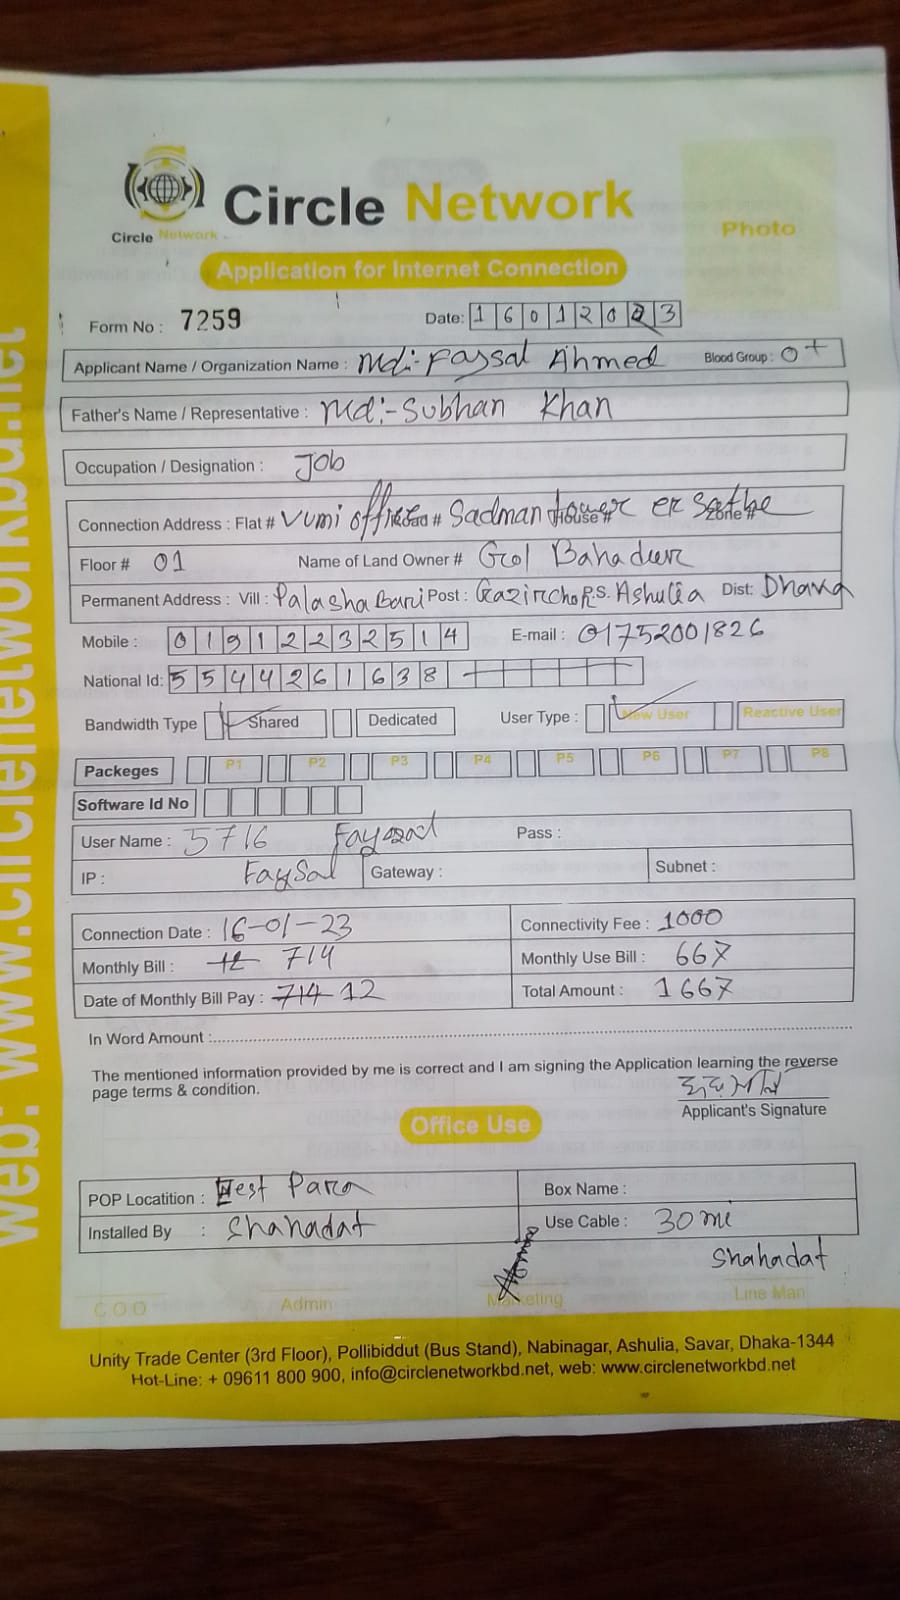 Circle Network
Circle Network
Photo
Application for Internet Connection
Form No : 7259
Date: 16012023
Applicant Name / Organization Name : Md:- Faysal Ahmed Blood Group : O+
Father's Name / Representative : Md:- Subhan Khan
Occupation / Designation : Job
Connection Address : Flat # Vumi office Road # Sadman tower House # er sathe Zone #
Floor # 01 Name of Land Owner # Gol Bahadur
Permanent Address : Vill : Palasha Bari Post : Gazircho P.S. Ashulia Dist: Dhaka
Mobile : 01912232514 E-mail : 01752001826
National Id: 5544261638
Bandwidth Type Shared Dedicated User Type : New User Reactive User
Packeges P1 P2 P3 P4 P5 P6 P7 P8
Software Id No
User Name : 5716 Pass :
IP : Faysal Gateway : Subnet :
Connection Date : 16-01-23 Connectivity Fee : 1000
Monthly Bill : 12 714 Monthly Use Bill : 667
Date of Monthly Bill Pay : 714 12 Total Amount : 1667
In Word Amount :
The mentioned information provided by me is correct and I am signing the Application learning the reverse
page terms & condition.
Applicant's Signature
Office Use
POP Locatition : West Para Box Name :
Installed By : Shahadat Use Cable : 30 mi
Shahadat
C O O Admin Marketing Line Man
Unity Trade Center (3rd Floor), Pollibiddut (Bus Stand), Nabinagar, Ashulia, Savar, Dhaka-1344
Hot-Line: + 09611 800 900, info@circlenetworkbd.net, web: www.circlenetworkbd.net
web: www.circlenetworkbd.net